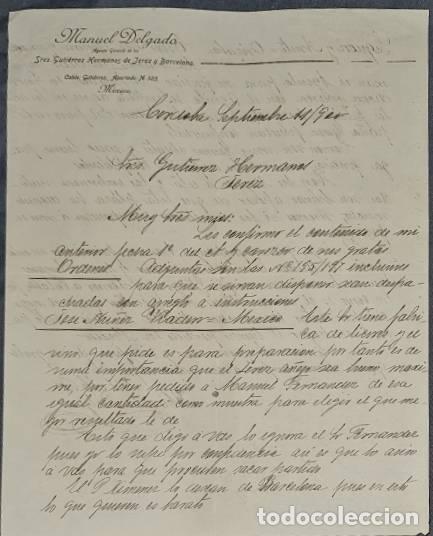 Manuel Delgado
Agente General de los
Sres. Gutiérrez Hermanos de Jerez y Barcelona.
Cable, Gutiérrez, Apartado N. 323
México
Septiembre 11/9
Sres. Gutierrez Hermanos
Jerez
Muy Sres mios:
Les confirmo el contenido de mi
anterior fecha 1º del ct y carezco de sus gratas
Ordenes. Adjuntas son las Nº 195/197 inclusives
para que se sirvan disponer sean despa-
chadas con arreglo a instrucciones
José Nuñez Mexico. Este Sr tiene fabri-
ca de licores y el
vino que pide es para preparacion por tanto es de
suma importancia que el Jerez añejo sea bueno maxi-
me, por tener pedido a Manuel Fernandez de esa
igual cantidad como muestra para elejir el que me-
jor resultado le de
Esto que digo a Vds lo ignora el Sr Fernandez
pues yo lo supe por confidencia asi es que lo aviso
a Vds para que procuren sacar partido
El P. Ximenez lo de Barcelona pues en este
lo que quieren es barato
todocoleccion